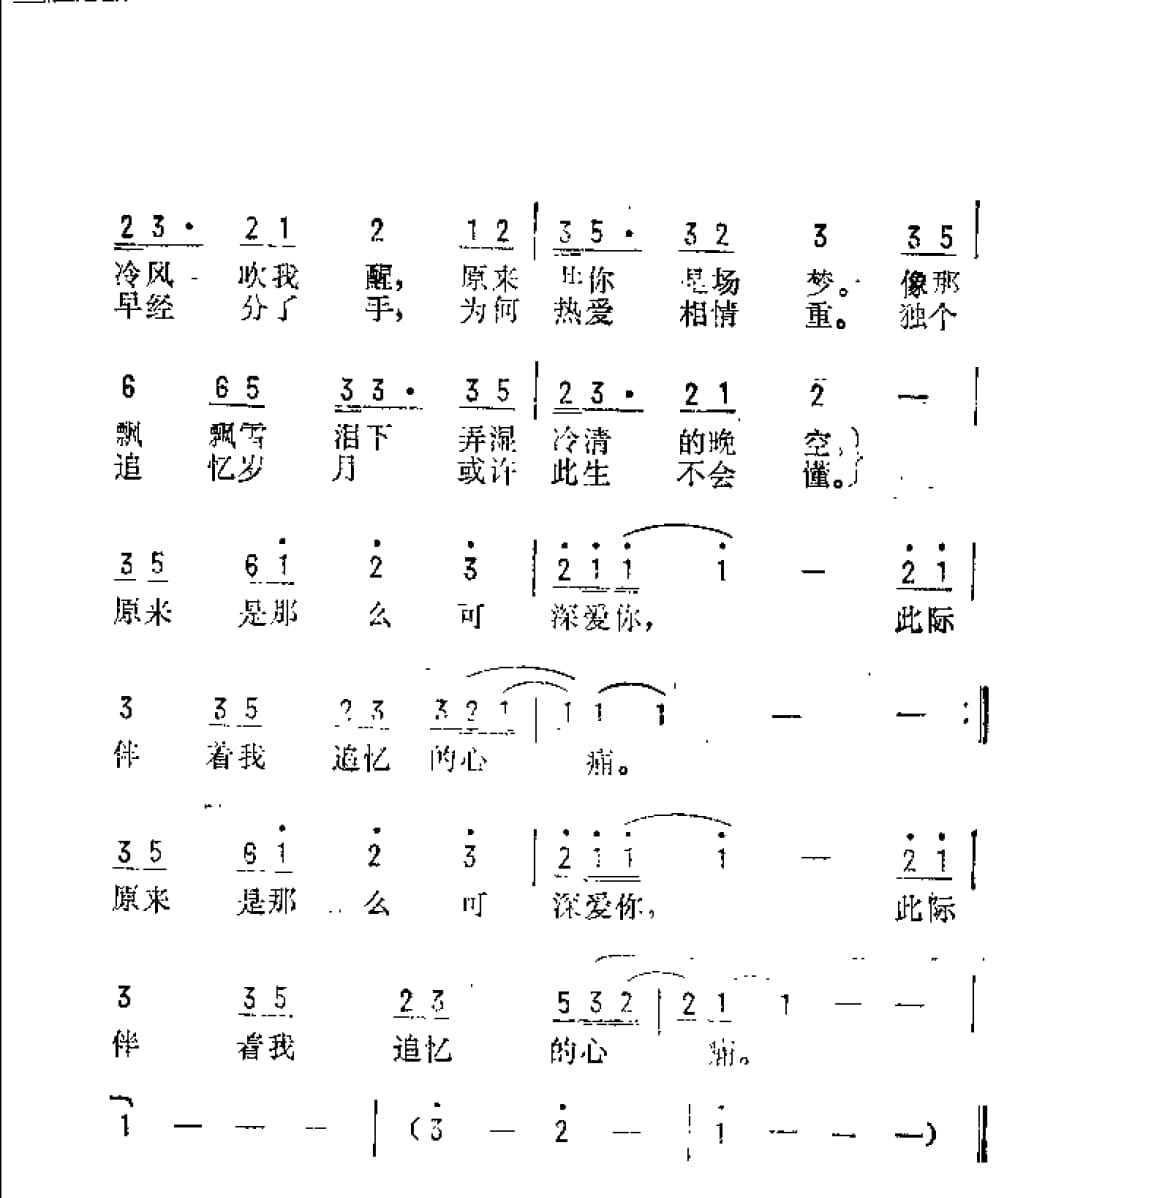 2 3 · 2 1 2 1 2 | 3 5 · 3 2 3 3 5 |
冷风 吹我 醒， 原来 你 是场 梦。 像那
早经 分了 手， 为何 热爱 相情 重。 独个
6 6 5 3 3 · 3 5 | 2 3 · 2 1 2 — |
飘 飘雪 泪下 弄湿 冷清 的晚 空，}
追 忆岁 月 或许 此生 不会 懂。}
3 5 6 1 2 3 | 2 1 1 1 — 2 1 |
原来 是那 么 可 深爱你， 此际
3 3 5 2 3 3 2 1 | 1 1 1 — — :‖
伴 着我 追忆 的心 痛。
3 5 6 1 2 3 | 2 1 1 1 — 2 1 |
原来 是那 么 可 深爱你， 此际
3 3 5 2 3 5 3 2 | 2 1 1 — — |
伴 着我 追忆 的心 痛。
1 — — — | (3 — 2 — | 1 — — —) ‖